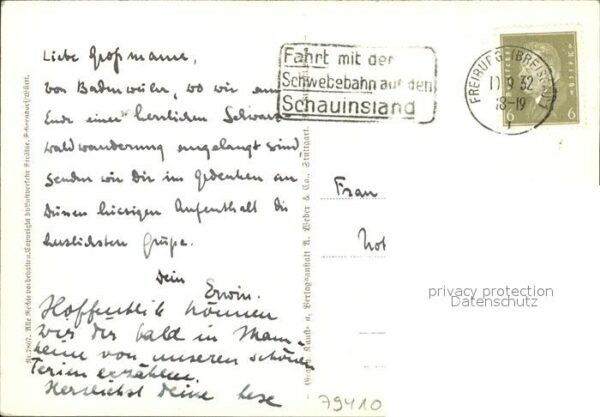 Liebe Großmama,
von Badenweiler, wo wir am
Ende einer herrlichen Schwarz-
waldwanderung angelangt sind,
senden wir Dir im Gedenken an
Deinen hiesigen Aufenthalt die
herzlichsten Grüße.
Dein
Erwin.
Hoffentlich können
wir dir bald in Mann-
heim von unseren schönen
Ferien erzählen.
Herzlichst deine Lese
Fahrt mit der
Schwebebahn auf den
Schauinsland
FREIBURG (BREISGAU)
9 32
18-19
6 6
Frau
privacy protection
Datenschutz
79410
Kunst- u. Verlagsanstalt A. Weber & Co., Stuttgart.
Alle Rechte vorbehalten. Copyright